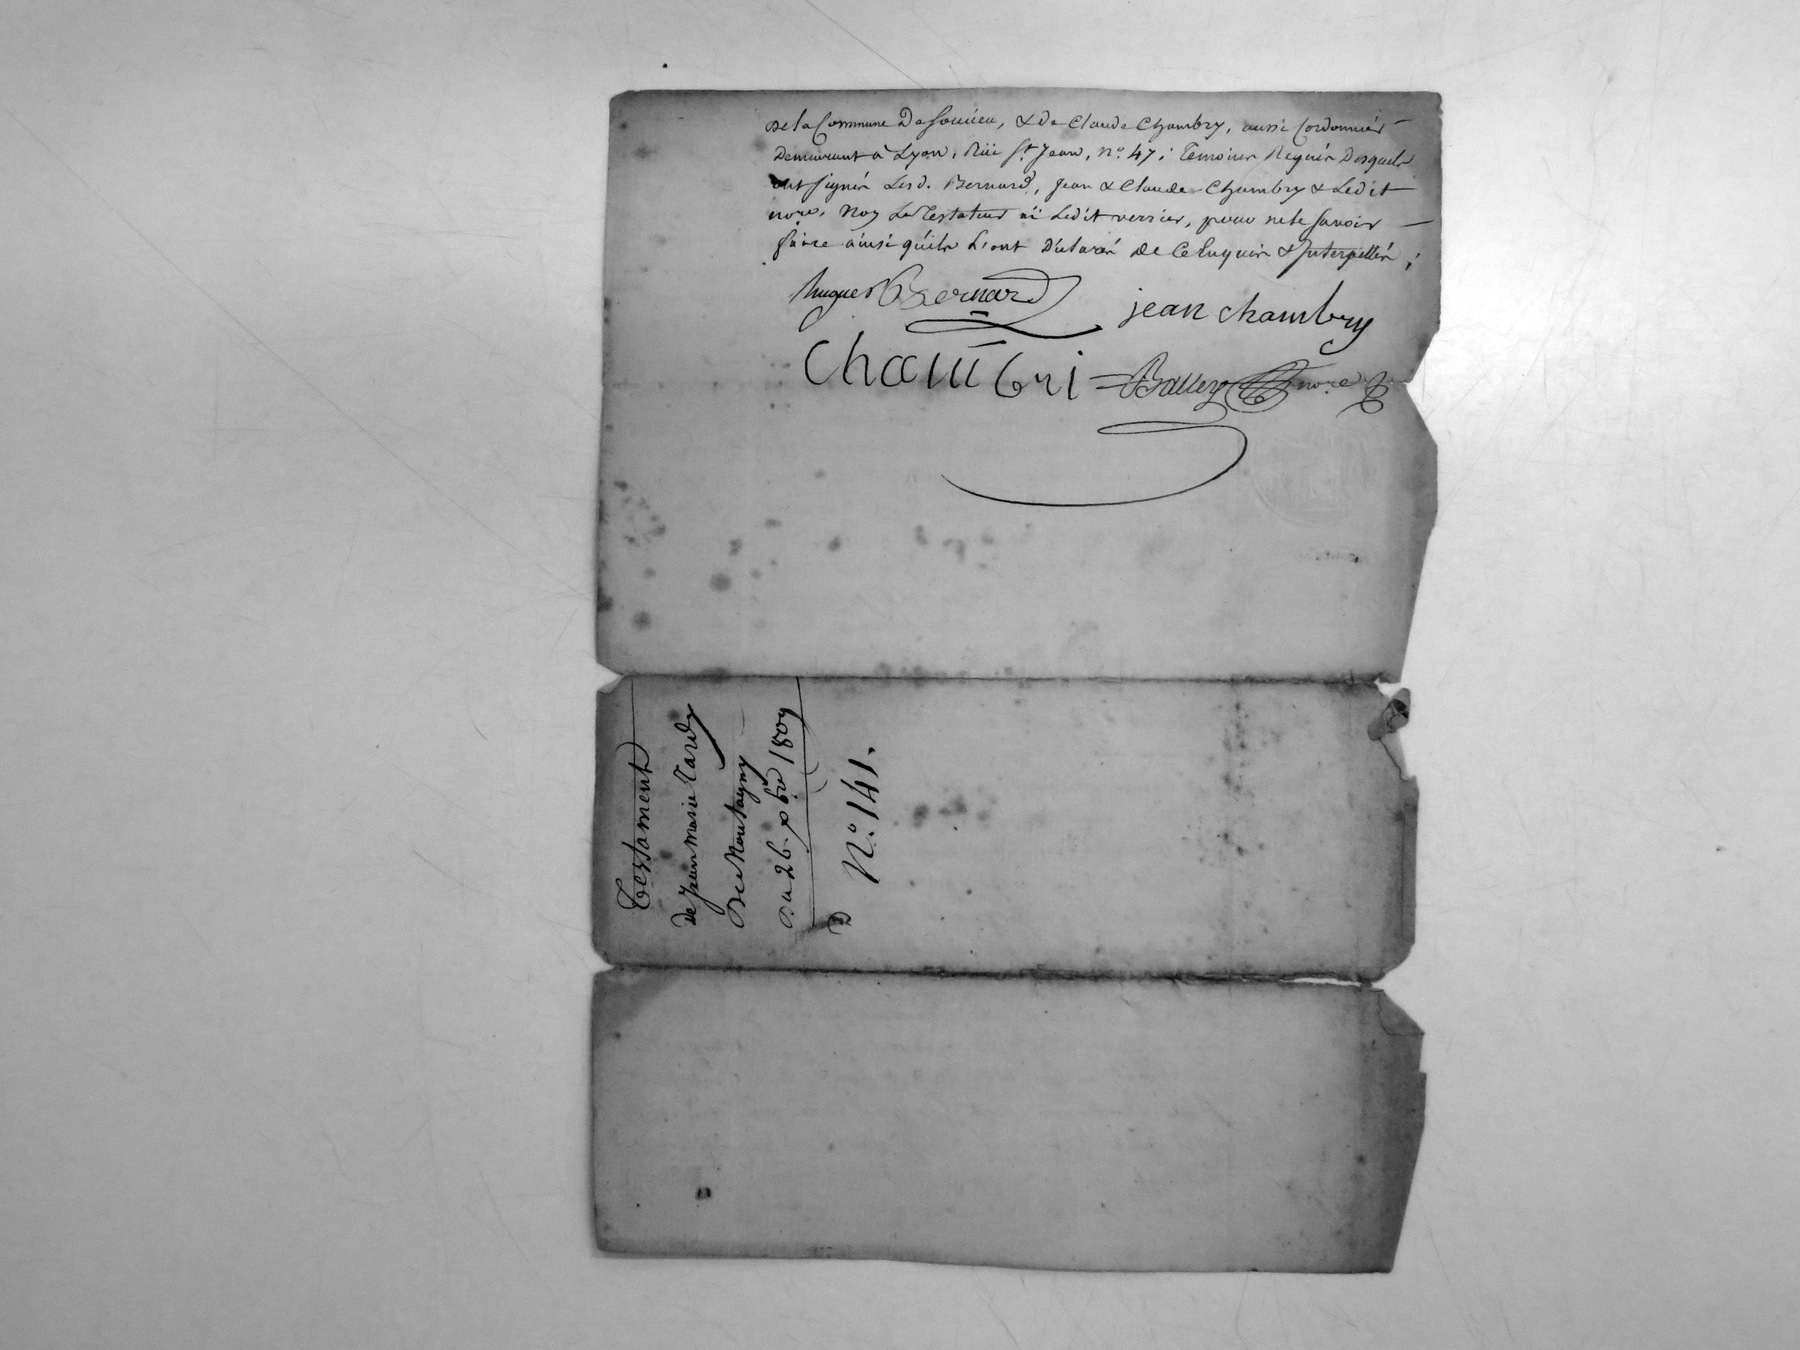 de la Commune De Soucieu, & de Claude Chambry, aussi Cordonnier
demeurant à Lyon, Rüe St. Jean, no. 47; temoins Requis Desquels
ont signés Lesd. Bernard, Jean & Claude Chambry & Ledit
nore. Non Le Testateur ni Ledit verrier, pour ne le savoir
faire ainsi qu'ils L'ont déclaré de Ce Enquis & Interpellés;
hugues Bernard
jean chambry
Chambri
nore
Testament
de Jean Marie Tardy
De Montagny
Du 26. xbre 1809
No. 141.